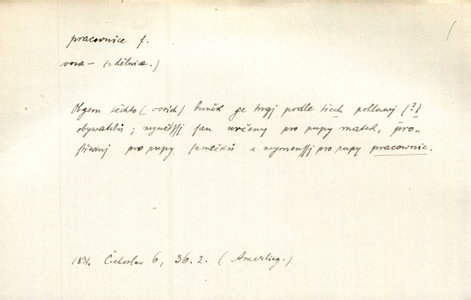 pracovnice f.
vosa – (dělnice.)
Obgem těchto (vosích) buněk ge trogj podle třech pohlawj (?)
obywatelů; neywětssj gsau určeny pro pupy matek, pro-
střednj pro pupy samečků a neymenssj pro pupy pracownic.
1831. Čechoslav 6, 36.2. (Amerling.)